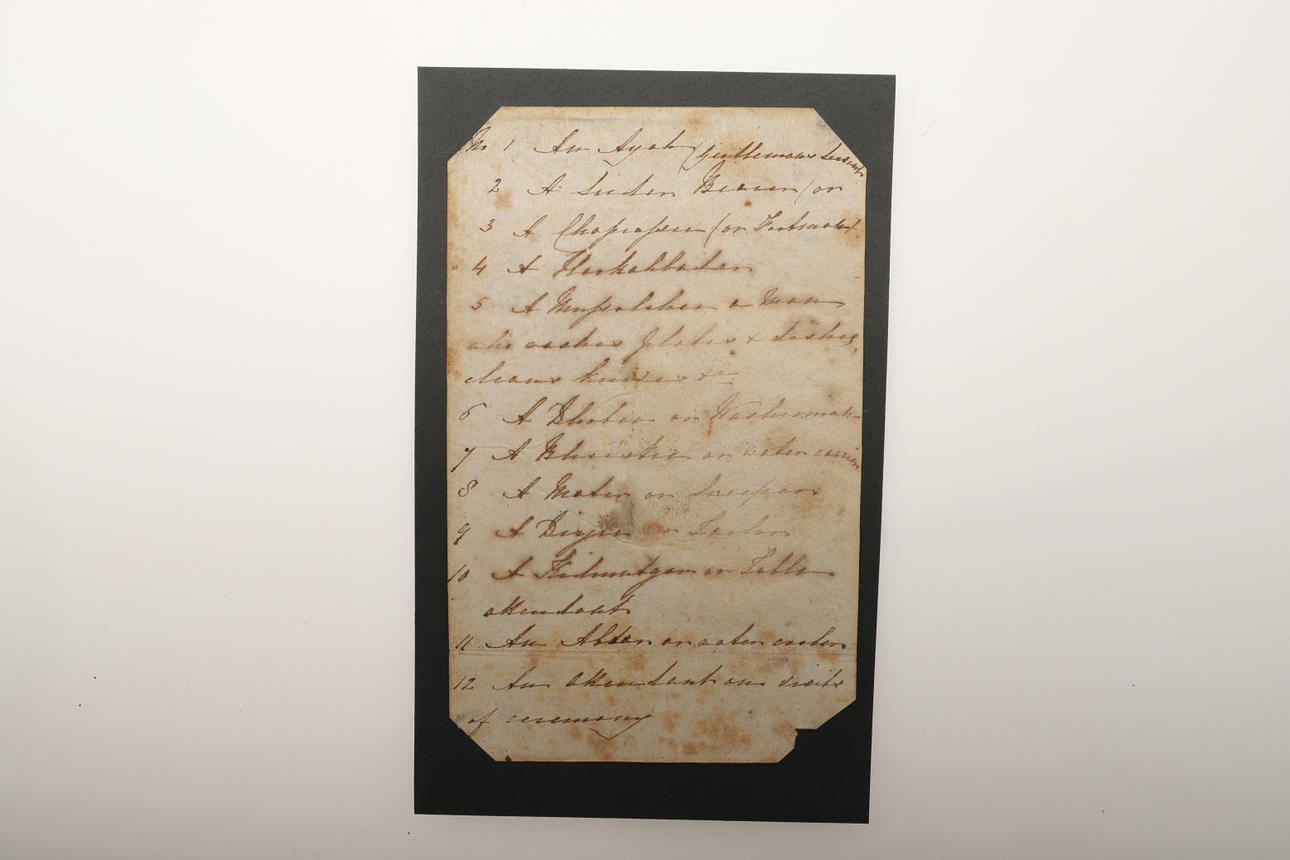 No 1 An Ayah (Gentlemans Servant
2 A Sirdar Bearer (or
3 A Chaprassee (or Footman)
4 A Hookahbadar
5 A Mussolchee a man
who washes plates & dishes,
cleans knives &c
6 A Dhobee or Washerman
7 A Bheestie or water carrier
8 A Mater or Sweeper
9 A Dirgee or Tailor
10 A Kidmutgar or Table
attendant
11 An Abdar or water cooler
12 An attendant on visits
of ceremony